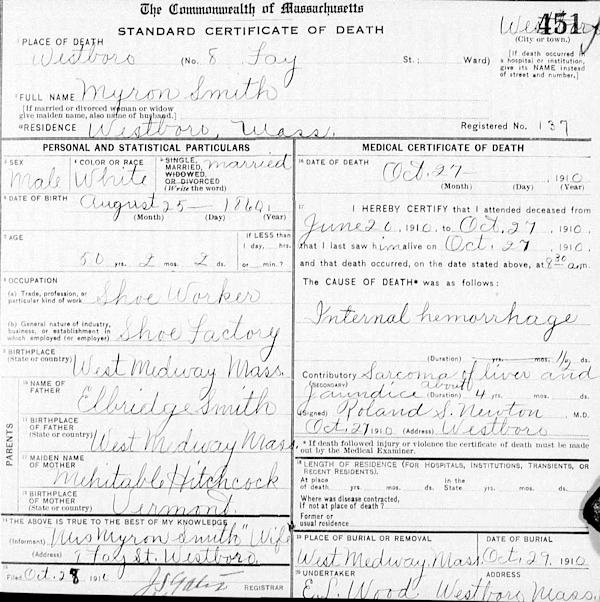 The Commonwealth of Massachusetts
STANDARD CERTIFICATE OF DEATH
451
(City or town.)
1 PLACE OF DEATH
Westboro (No. 8 Fay St.; Ward)
[If death occurred in a hospital or institution, give its NAME instead of street and number.]
2 FULL NAME Myron Smith
[If married or divorced woman or widow give maiden name, also name of husband.]
RESIDENCE Westboro, Mass. Registered No. 137
PERSONAL AND STATISTICAL PARTICULARS
3 SEX Male
4 COLOR OR RACE White
5 SINGLE, MARRIED, WIDOWED, OR DIVORCED (Write the word) married
6 DATE OF BIRTH August 25 — 1860
(Month) (Day) (Year)
7 AGE
If LESS than 1 day, hrs. or min.?
50 yrs. 2 mos. 2 ds.
8 OCCUPATION
(a) Trade, profession, or particular kind of work Shoe Worker
(b) General nature of industry, business, or establishment in which employed (or employer) Shoe Factory
9 BIRTHPLACE (State or country) West Medway Mass.
PARENTS
10 NAME OF FATHER Elbridge Smith
11 BIRTHPLACE OF FATHER (State or country) West Medway Mass.
12 MAIDEN NAME OF MOTHER Mehitable Hitchcock
13 BIRTHPLACE OF MOTHER (State or country) Vermont
14 THE ABOVE IS TRUE TO THE BEST OF MY KNOWLEDGE
(Informant) Mrs Myron Smith "Wife"
(Address) Fay St. Westboro
15 Filed Oct. 28, 1910
REGISTRAR
MEDICAL CERTIFICATE OF DEATH
16 DATE OF DEATH
Oct. 27, 1910
(Month) (Day) (Year)
17 I HEREBY CERTIFY that I attended deceased from
June 20, 1910, to Oct. 27, 1910,
that I last saw him alive on Oct. 27, 1910,
and that death occurred, on the date stated above, at 8 30 a m.
The CAUSE OF DEATH* was as follows:
Internal hemorrhage
(Duration) yrs. mos. ds.
Contributory Sarcoma of liver and
(SECONDARY) Jaundice (Duration) about 4 yrs. mos. ds.
(Signed) Roland S. Newton, M.D.
Oct. 27 1910 (Address) Westboro
* If death followed injury or violence the certificate of death must be made out by the Medical Examiner.
18 LENGTH OF RESIDENCE (FOR HOSPITALS, INSTITUTIONS, TRANSIENTS, OR RECENT RESIDENTS).
At place of death yrs. mos. ds. In the State yrs. mos. ds.
Where was disease contracted, If not at place of death?
Former or usual residence
19 PLACE OF BURIAL OR REMOVAL DATE OF BURIAL
West Medway Mass. Oct. 29, 1910
20 UNDERTAKER ADDRESS
Wood Westboro, Mass.